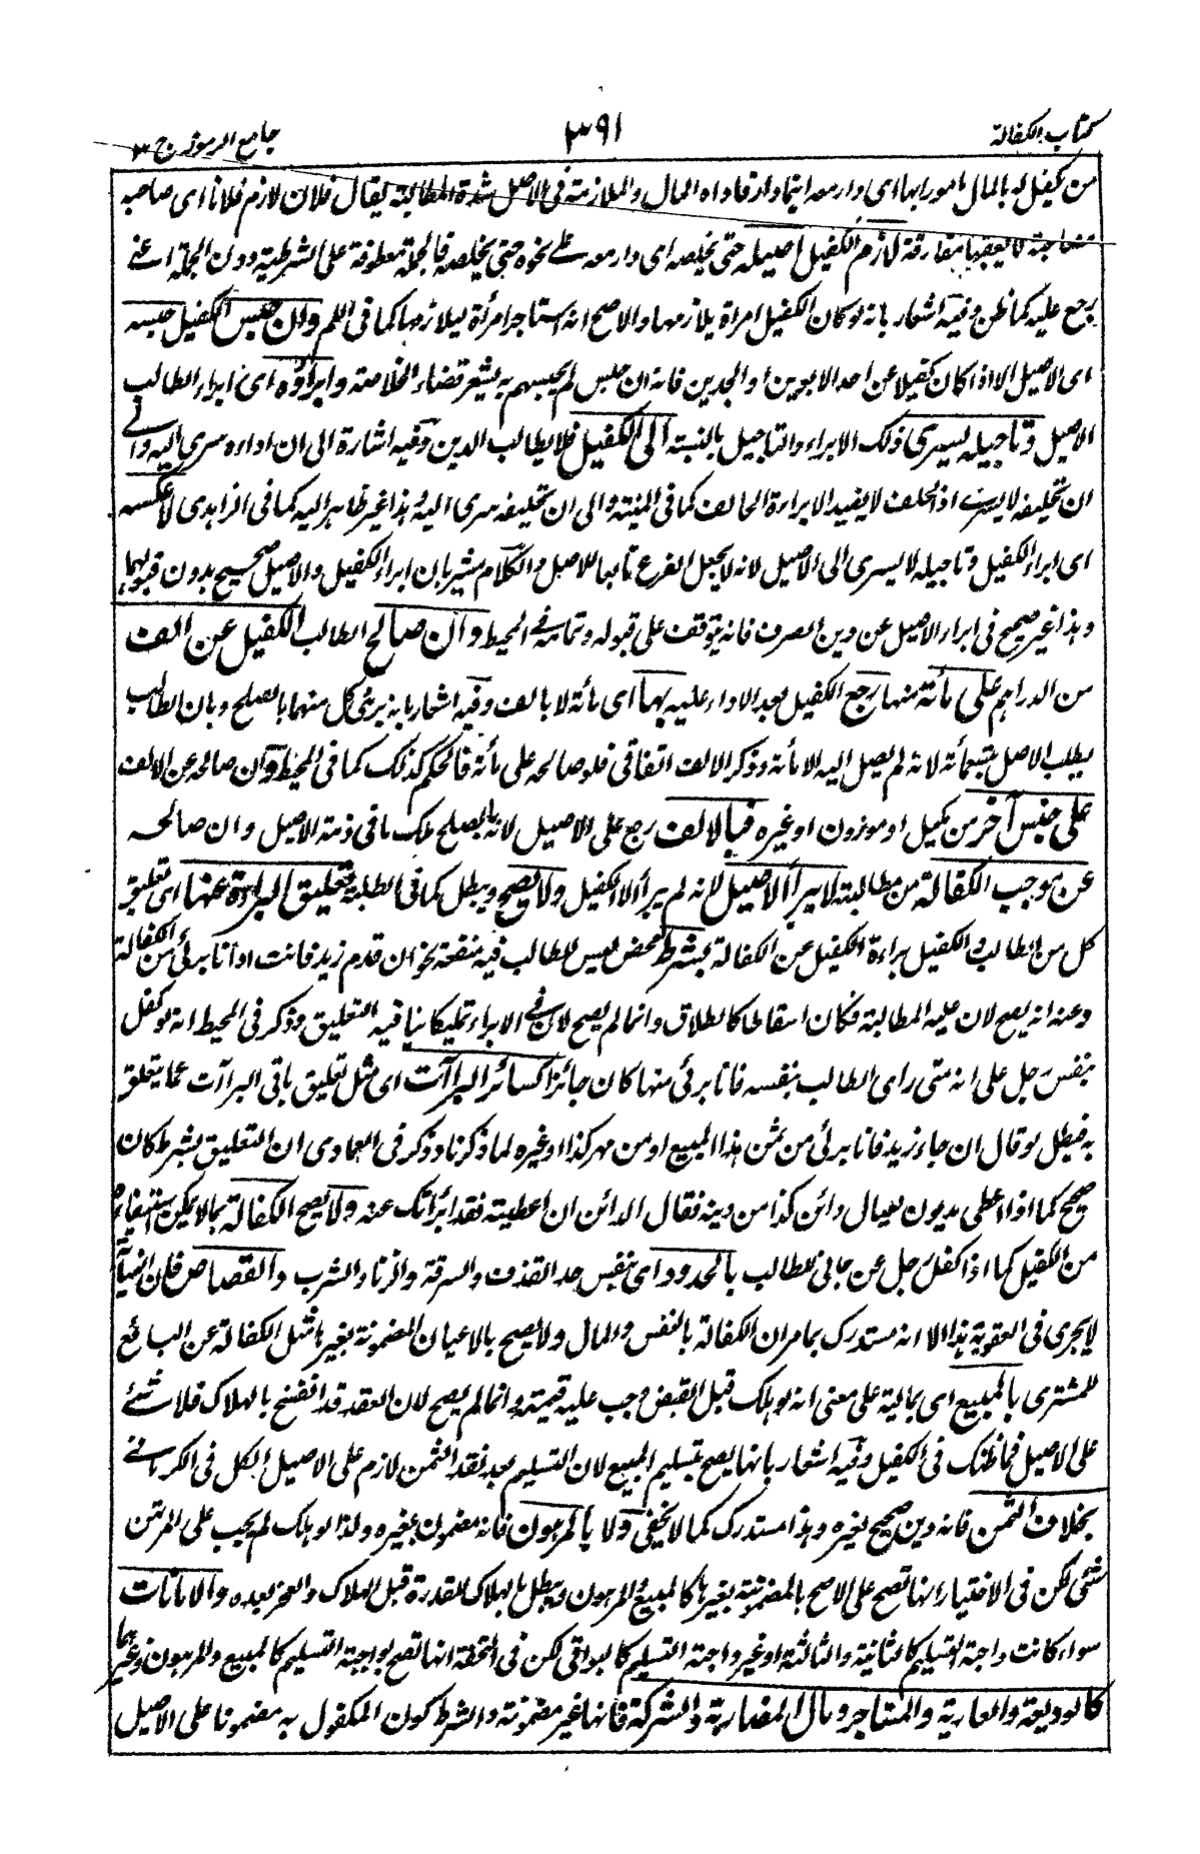 كتاب الكفالة
٣٩١
جامع الرموز ج ٣
من كفيل له بالمال مامور ابها اى دار معه اينما دار فاداه المال والملازمة فى الاصل شدة المطالبة يقال فلان لازم فلانا اى صاحبه
مصاحبة لا يعقبها مفارقة لازم الكفيل اصيله حتى يخلصه اى دار معه الى نحوه حتى يخلصه فالجملة معطوفة على الشرطية دون الجملة اعنى
رجع عليه كما ظن وفيه اشعار بانه لو كان الكفيل امراة يلازمها والاصح انه استاجر امرأة ليلازمها كما فى وان حبس الكفيل حبسه
اى الاصيل الا اذا كان كفيلا عن احد الابوين او الجدين فانه ان حبس لم يحبسهم به يشعر قضاء الخلاصة وابراؤه اى ابراء الطالب
الاصيل وتاجيله يسرى ذلك الابراء والتاجيل بالنسبة الى الكفيل فلا يطالب الدين وفيه اشارة الى ان اداءه سرى اليه والى
ان تحليفه لا يسرى اذ الحلف لا يفيد الا براءة الحالف كما فى المنية والى ان تحليفه سرى اليه وهذا غير ظاهر اليه كما فى الزاهدى لا عكسه
اى ابراء الكفيل وتاجيله لا يسرى الى الاصيل لانه لا يجعل الفرع تابعا للاصل والكلام مشير بان ابراء الكفيل والاصيل صحيح بدون قبولهما
وهذا غير صحيح فى ابراء الاصيل عن دين الصرف فانه يتوقف على قبوله وتمامه فى المحيط وان صالح الطالب الكفيل عن الف
من الدراهم على مائة منها رجع الكفيل بعد الاداء عليه بها اى مائة لا بالف وفيه اشعار بانه برئ كل منهما بالصلح وبان الطالب
يطلب الاصل بتسعمائة لانه لم يصل اليه الا مائة وذكر الالف اتفاقى فلو صالحه على مائة فالحكم كذلك كما فى المحيط وان صالحه عن الالف
على جنس آخر من مكيل او موزون او غيره فبالالف رجع على الاصيل لانه بالصلح ملك ما فى ذمة الاصيل وان صالحه
عن موجب الكفالة من مطالبته لا يبرأ الاصيل لانه لم يبرأ الا الكفيل ولا يصح ويبطل كما فى الطلبة تعليق البراءة عنها اى تعليق
كل من الطالب والكفيل براءة الكفيل عن الكفالة بشرط محض ليس للطالب فيه منفعة نحو ان قدم زيد فانت او انا برئ من الكفالة
وعنه انه يصح لان عليه المطالبة فكان اسقاطا كالطلاق وانما لم يصح لان فى الابراء تمليكا ينافيه التعليق وذكر فى المحيط انه لو كفل
بنفس رجل على انه متى راى الطالب بنفسه فانا برئ منها كان جائزا كسائر البراآت اى مثل تعليق باقى البراآت عما يتعلق
به فيبطل لو قال ان جاء زيد فانا برئ من ثمن هذا المبيع او من مهر كذا او غيره لما ذكرنا وذكر فى العمادى ان التعليق بشرط كان
صحيح كما اذا اعطى مديون لعيال دائن كذا من دينه فقال الدائن ان اعطيته فقد ابرأتك عنه ولا يصح الكفالة بما لا يمكن استيفاؤه
من الكفيل كما اذا كفل رجل عن جانى للطالب بالحدود اى بنفس حد القذف والسرقة والزنا والشرب والقصاص فان النيابة
لا يجرى فى العقوبة هذا الا انه مستدرك بما مر ان الكفالة بالنفس والمال ولا يصح بالاعيان المضمونة بغيرها مثل الكفالة عن البائع
للمشترى بالمبيع اى بمالية على معنى انه لو هلك قبل القبض وجب عليه قيمته وانما لم يصح لان العقد قد انفسخ بالهلاك فلا شئ
على الاصيل فما ظنك فى الكفيل وفيه اشعار بانها يصح بتسليم المبيع لان التسليم بعد نقد الثمن لازم على الاصيل الكل فى الكرمانى
بخلاف الثمن فانه دين صحيح لغيره وهذا مستدرك كما لا يخفى ولا بالمرهون فانه مضمون بغيره ولذا لو هلك لم يجب على المرتهن
شئ لكن فى الاختيار انها تصح على الاصح بالمضمونة بغيرها كالمبيع والمرهون ويبطل بالهلاك للقدرة قبل الهلاك والعجز بعده والامانات
سواء كانت واجبة التسليم كالثانية والثالثة او غير واجبة التسليم كالبواقى لكن فى التحفة انها تصح بواجبة التسليم كالمبيع والمرهون وغيرهما
كالوديعة والعارية والمستاجر ومال المضاربة والشركة فانها غير مضمونة والشرط كون المكفول به مضمونا على الاصيل